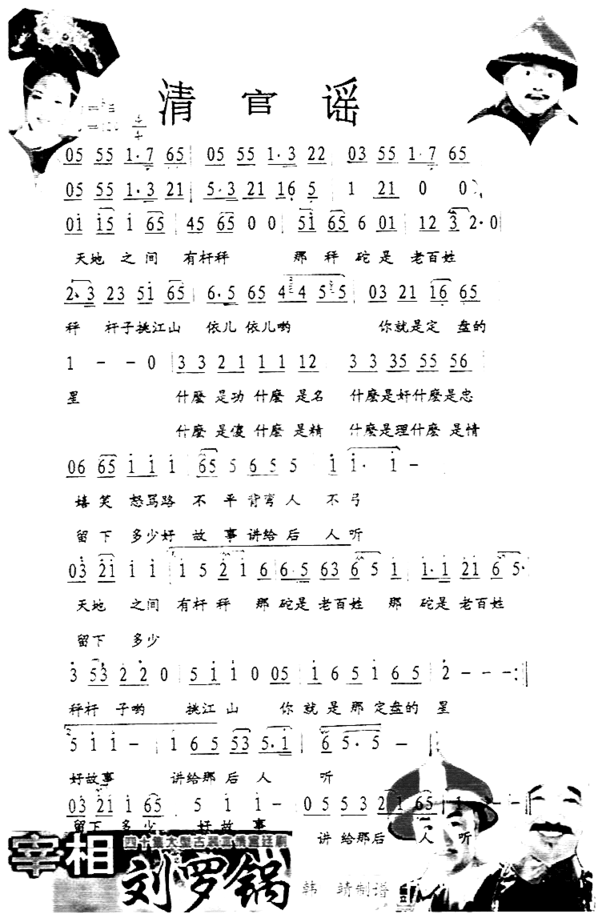 清官谣
05 55 1·7 65 | 05 55 1·3 22 | 03 55 1·7 65
05 55 1·3 21 | 5·3 21 16 5 | 1 21 0 0
01 15 1 65 | 45 65 0 0 | 51 65 6 01 | 12 3 2·0
天地 之 间 有杆秤 那 秤 砣 是 老百姓
2·3 23 51 65 | 6·5 65 4 4 5 5 | 03 21 16 65
秤 杆子挑江山 依儿 依儿哟 你就是定 盘的
1 - - 0 | 3 3 2 1 1 1 12 | 3 3 35 55 56
星 什麼 是功 什麼 是名 什麼是奸什麼是忠
什麼 是傻 什麼 是精 什麼是理什麼 是情
06 65 1 1 1 | 65 5 6 5 5 | 1 1· 1 -
嬉 笑 怒骂路 不 平 背弯 人 不 弓
留 下 多少好 故 事 讲给 后 人 听
03 21 1 1 | 1 5 2 1 6 | 6·5 63 6 5 | 1·1 21 6 5·
天地 之间 有杆 秤 那 砣是老百姓 那 砣是 老百姓
留下 多少
3 53 2 2 0 | 5 1 1 0 05 | 1 6 5 1 6 5 | 2 - - - :|
秤杆 子哟 挑江 山 你 就 是 那 定盘的 星
5 1 1 - | 1 6 5 53 5·1 | 6 5· 5 - |
好故事 讲给那 后 人 听
03 21 1 65 | 5 1 1 - | 0 5 5 3 2 1 65 | 1 - - -
留 下 多 少 好 故 事 讲 给那后 人 听
四十集大型古装
宰相
刘罗锅
韩 靖制谱